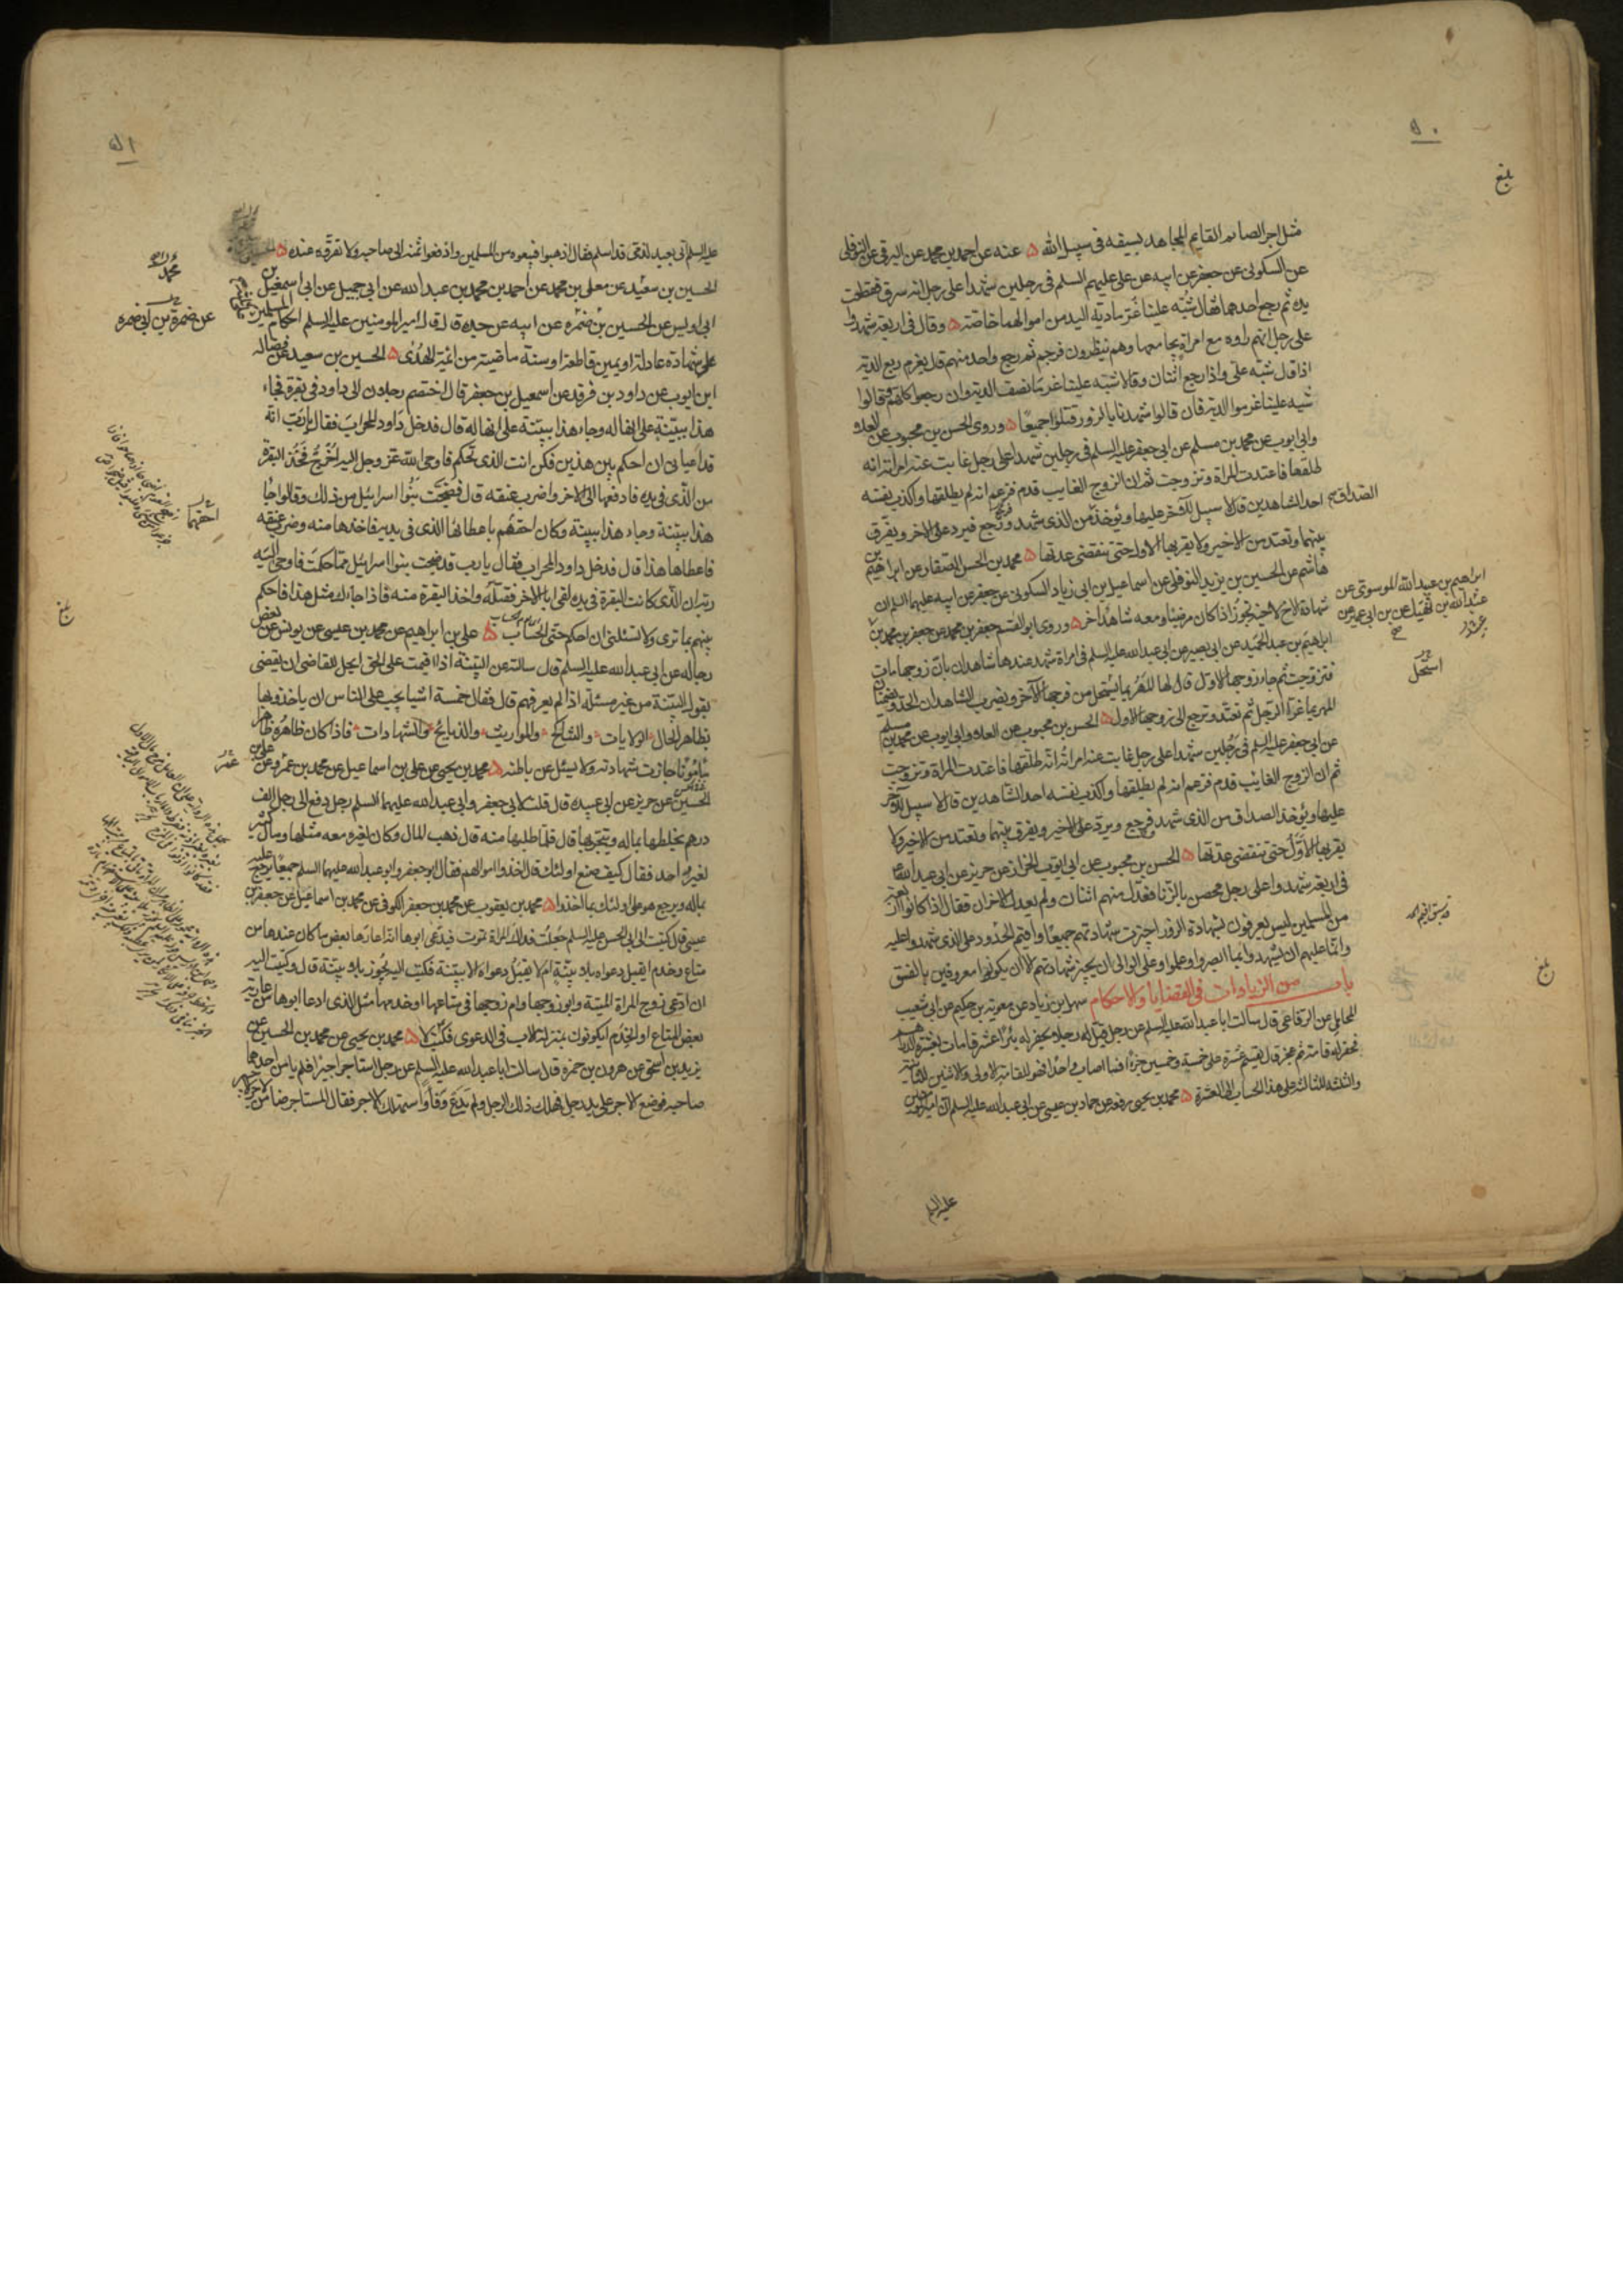 ٥٠
بلغ
مثل اجر الصائم القايم المجاهد بسيفه في سبيل الله ٥ عنه عن احمد بن محمد عن البرقي عن النوفلي
عن السكوني عن جعفر عن ابيه عن علي عليهم السلم في رجلين شهدا على رجل انه سرق فقطعت
يده ثم رجع احدهما فقال شبه علينا غرما دية اليد من اموالهما خاصة ٥ وقال في اربعة شهدوا
على رجل انهم راوه مع امراة يجامعها وهم ينظرون فرجم ثم رجع واحد منهم قال يغرم ربع الدية
اذا قال شبه علي واذا رجع اثنان وقالا شبه علينا غرما نصف الدية وان رجعوا كلهم وقالوا
شبه علينا غرموا الدية فان قالوا شهدنا بالزور قتلوا جميعا ٥ وروى الحسن بن محبوب عن العلاء
وابي ايوب عن محمد بن مسلم عن ابي جعفر عليه السلم في رجلين شهدا على رجل غايب عند امراته انه
طلقها فاعتدت المراة وتزوجت ثم ان الزوج الغايب قدم فزعم انه لم يطلقها واكذب نفسه
احد الشاهدين قال لا سبيل للاخر عليها ويؤخذ من الذي شهد ورجع فيرد على الاخر ويفرق
الصداق
بينهما وتعتد من الاخير ولا يقربها الاول حتى تنقضي عدتها ٥ محمد بن الحسن الصفار عن ابراهيم بن
هاشم عن الحسين بن يزيد النوفلي عن اسماعيل بن ابي زياد السكوني عن جعفر عن ابيه عليهما السلم ان
شهادة الاخ لاخيه تجوز اذا كان مرضيا ومعه شاهد اخر ٥ وروى ابو القسم جعفر بن محمد عن جعفر بن محمد بن
ابراهيم بن عبد الله الموسوي عن
عبد الله بن نهيك عن ابن ابي عمير عن
ابراهيم بن عبد الحميد عن ابي بصير عن ابي عبد الله عليه السلم في امراة شهد عندها شاهدان بان زوجها مات
فتزوجت ثم جاء زوجها الاول قال لها المهر بما يستحل من فرجها الاخر ويضرب الشاهدان الحد ويضمنان
استحل
المهر بما غرا الرجل ثم تعتد وترجع الى زوجها الاول ٥ الحسن بن محبوب عن العلاء وابي ايوب عن محمد بن مسلم
عن ابي جعفر عليه السلم في رجلين شهدا على رجل غايب عند امراته انه طلقها فاعتدت المراة وتزوجت
ثم ان الزوج الغايب قدم فزعم انه لم يطلقها واكذب نفسه احد الشاهدين قال لا سبيل للاخر
عليها ويؤخذ الصداق من الذي شهد ورجع ويرد على الاخير ويفرق بينهما وتعتد من الاخير ولا
يقربها الاول حتى تنقضي عدتها ٥ الحسن بن محبوب عن ابي ايوب الخزاز عن حريز عن ابي عبد الله
في اربعة شهدوا على رجل محصن بالزنا فعدل منهم اثنان ولم يعدل الاخران فقال اذا كانوا اربعة
من المسلمين ليس يعرفون بشهادة الزور اجيزت شهادتهم جميعا واقيم الحدود على الذي شهدوا عليه
وانما عليهم ان يشهدوا بما ابصروا وعلموا وعلى الوالي ان يجيز شهادتهم الا ان يكونوا معروفين بالفسق
باب من الزيادات في القضايا والاحكام سهل بن زياد عن معوية بن حكيم عن ابي شعيب
المحاملي عن الرفاعي قال سالت ابا عبد الله عليه السلم عن رجل قبل رجلا يحفر له بئرا عشر قامات بعشرة دراهم
فحفر له قامة ثم عجز قال يقسم عشرة على خمسة وخمسين جزءا فما اصاب واحدا فهو للقامة الاولى والاثنين للثانية
والثلثة للثالثة على هذا الحساب الى العشرة ٥ محمد بن يحيى رفعه عن حماد بن عيسى عن ابي عبد الله عليه السلم ان امير المومنين
عليه السلم
بلغ
٥١
عليه السلم اتي بعبد لذمي قد اسلم فقال اذهبوا فبيعوه من المسلمين وادفعوا ثمنه الى صاحبه ولا تقروه عنده ٥
الحسين بن سعيد عن معلى بن محمد عن احمد بن محمد بن عبد الله عن ابي جميل عن اسمعيل بن
ابي اويس عن الحسين بن ضمره عن ابيه عن جده قال قال امير المومنين عليه السلم احكام المسلمين
عن ضمرة بن ابي ضمره
على شهادة عادلة او يمين قاطعة او سنة ماضية من ائمة الهدى ٥ الحسين بن سعيد عن فضاله
ابن ايوب عن داود بن فرقد عن اسمعيل بن جعفر قال اختصم رجلان الى داود في بقرة فجاء
هذا ببينة على انها له وجاء هذا ببينة على انها له قال فدخل داود المحراب فقال يا رب انه
قد اعياني ان احكم بين هذين فكن انت الذي تحكم فاوحى الله عز وجل اليه اخرج فخذ البقرة
من الذي في يده فادفعها الى الاخر واضرب عنقه قال فضجت بنوا اسرائيل من ذلك وقالوا جاء
هذا ببينة وجاء هذا ببينة وكان احقهم باعطائها الذي في يديه فاخذها منه وضرب عنقه
احقهما
فاعطاها هذا قال فدخل داود المحراب فقال يا رب قد ضجت بنوا اسرائيل مما حكمت فاوحى اليه
ربه ان الذي كانت البقرة في يده لقي ابا الاخر فقتله واخذ البقرة منه فاذا جاءك مثل هذا فاحكم
بينهم بما ترى ولا تسئلني ان احكم حتى الحساب ٥ علي بن ابراهيم عن محمد بن عيسى عن يونس عن بعض
بلغ
رجاله عن ابي عبد الله عليه السلم قال سالته عن البينة اذا اقيمت على الحق ايحل للقاضي ان يقضي
بقول البينة من غير مسئلة اذا لم يعرفهم قال فقال خمسة اشيا يجب على الناس ان ياخذوا بها
بظاهر الحال الولايات والتناكح والمواريث والذبايح والشهادات فاذا كان ظاهره ظاهرا
مامونا جازت شهادته ولا يسئل عن باطنه ٥ محمد بن يحيى عن علي بن اسماعيل عن محمد بن عمرو عن علي بن
الحسين عن حريز عن ابي عبيده قال قلت لابي جعفر وابي عبد الله عليهما السلم رجل دفع الى رجل الف
درهم يخلطها بماله ويتجر بها قال فلما طلبها منه قال ذهب المال وكان لغيره معه مثلها ومال كثير
لغير واحد فقال كيف صنع اولئك قال اخذوا اموالهم فقال ابو جعفر وابو عبد الله عليهما السلم جميعا يرجع عليه
بماله ويرجع هو على اولئك بما اخذوا ٥ محمد بن يعقوب عن محمد بن جعفر الكوفي عن محمد بن اسماعيل عن جعفر بن
عيسى قال كتبت الى ابي الحسن عليه السلم جعلت فداك المراة تموت فيدعي ابوها انه اعارها بعض ما كان عندها من
متاع وخدم ايقبل دعواه بلا بينة ام لا يقبل دعواه الا ببينة فكتب اليه يجوز بلا بينة قال وكتبت اليه
ان ادعى زوج المراة الميتة وابو زوجها وام زوجها في متاعها او خدمها مثل الذي ادعا ابوها من عارية
بعض المتاع او الخدم ايكونون بمنزلة الاب في الدعوى فكتب لا ٥ محمد بن يحيى عن محمد بن الحسين عن
يزيد بن اسحق عن هرون بن حمزه قال سالت ابا عبد الله عليه السلم عن رجل استاجر اجيرا فلم يامن احدهما
صاحبه فوضع الاجر على يد رجل فهلك ذلك الرجل ولم يدع وفاء واستهلك الاجر فقال المستاجر ضامن لاجر الاجير